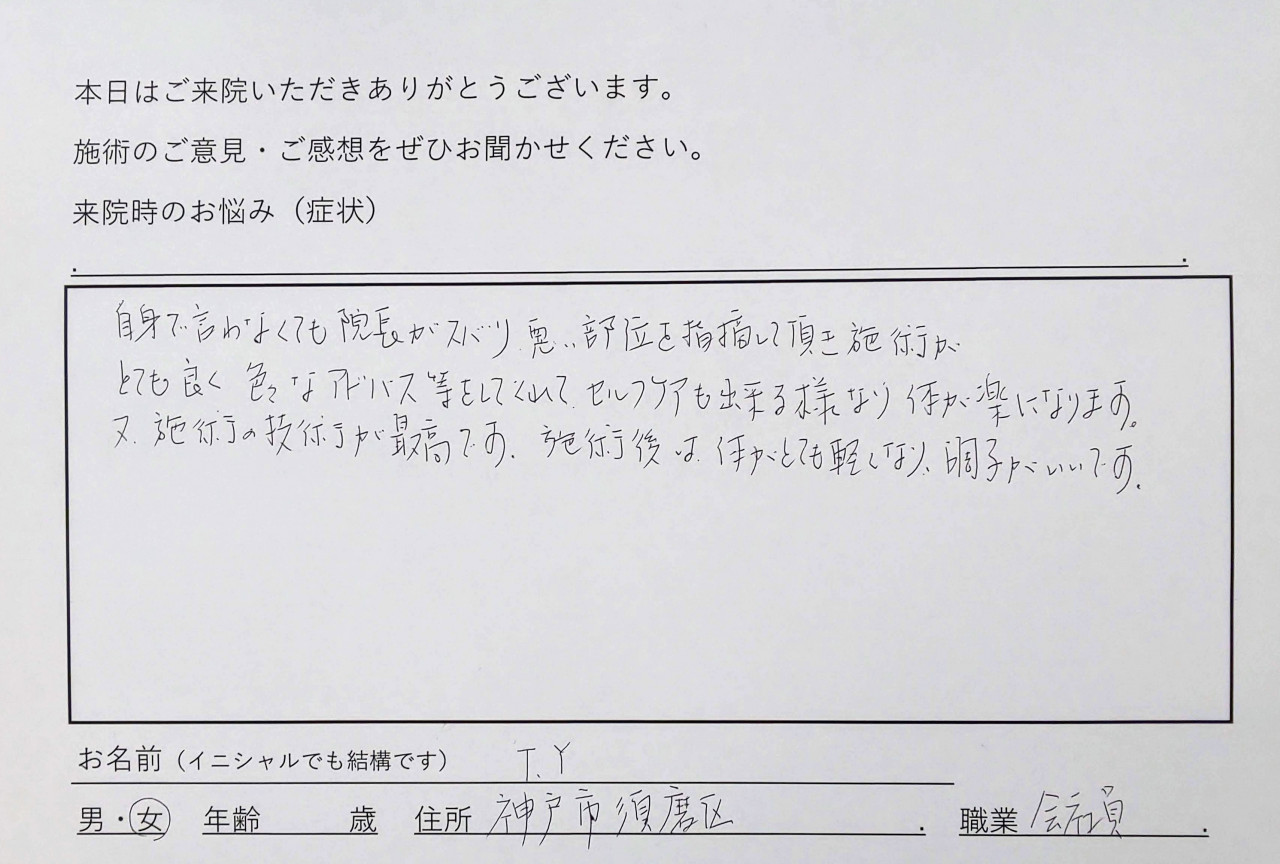 本日はご来院いただきありがとうございます。
施術のご意見・ご感想をぜひお聞かせください。
来院時のお悩み（症状）
自身で言わなくても院長がズバリ、悪い部位を指摘して頂き施術が
とても良く 色々なアドバイス等をしてくれて、セルフケアも出来る様なり 体が楽になります。
又、施術の技術が最高です。施術後は、体がとても軽くなり、調子がいいです。
お名前（イニシャルでも結構です） T.Y
男・女 年齢 歳 住所 神戸市須磨区 . 職業 会社員 .